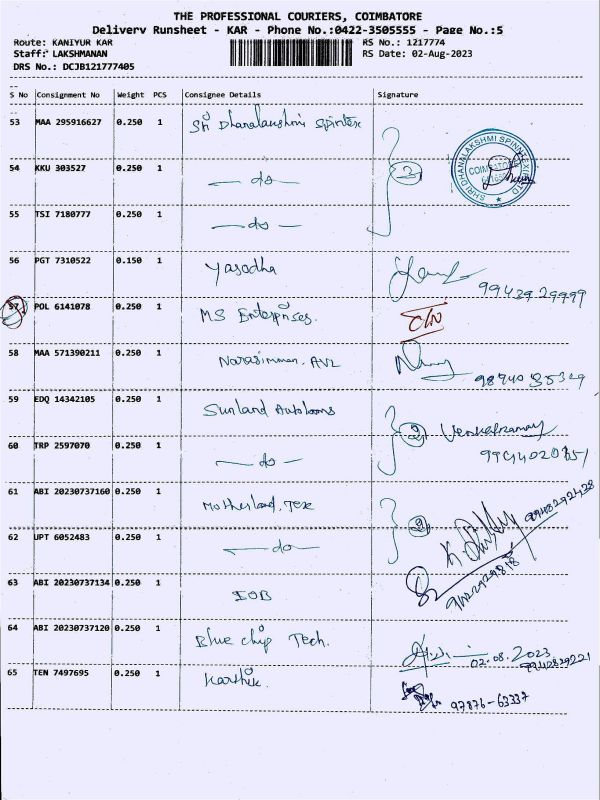 THE PROFESSIONAL COURIERS, COIMBATORE
Delivery Runsheet - KAR - Phone No.:0422-3505555 - Page No.:5
Route: KANIYUR KAR RS No.: 1217774
Staff: LAKSHMANAN RS Date: 02-Aug-2023
DRS No.: DCJB121777405
S No Consignment No Weight PCS Consignee Details Signature
53 MAA 295916627 0.250 1 Sri Dhanalakshmi Spintex
54 KKU 303527 0.250 1 — do — 3
SHRI DHANALAKSHMI SPINNTEX (P) LTD
COIMBATORE
55 TSI 7180777 0.250 1 — do —
56 PGT 7310522 0.150 1 Yasodha
9943929999
57 POL 6141078 0.250 1 MS Enterprises.
58 MAA 571390211 0.250 1 Narasimman. AVL
59 EDQ 14342105 0.250 1 Sunland Autolooms
2
60 TRP 2597070 0.250 1 — do —
61 ABI 20230737160 0.250 1 Motherland. Tex
2
62 UPT 6052483 0.250 1 — do —
63 ABI 20230737134 0.250 1 IOB
64 ABI 20230737120 0.250 1 Blue chip Tech.
02.08.2023
65 TEN 7497695 0.250 1 Karthik.
97876-63337